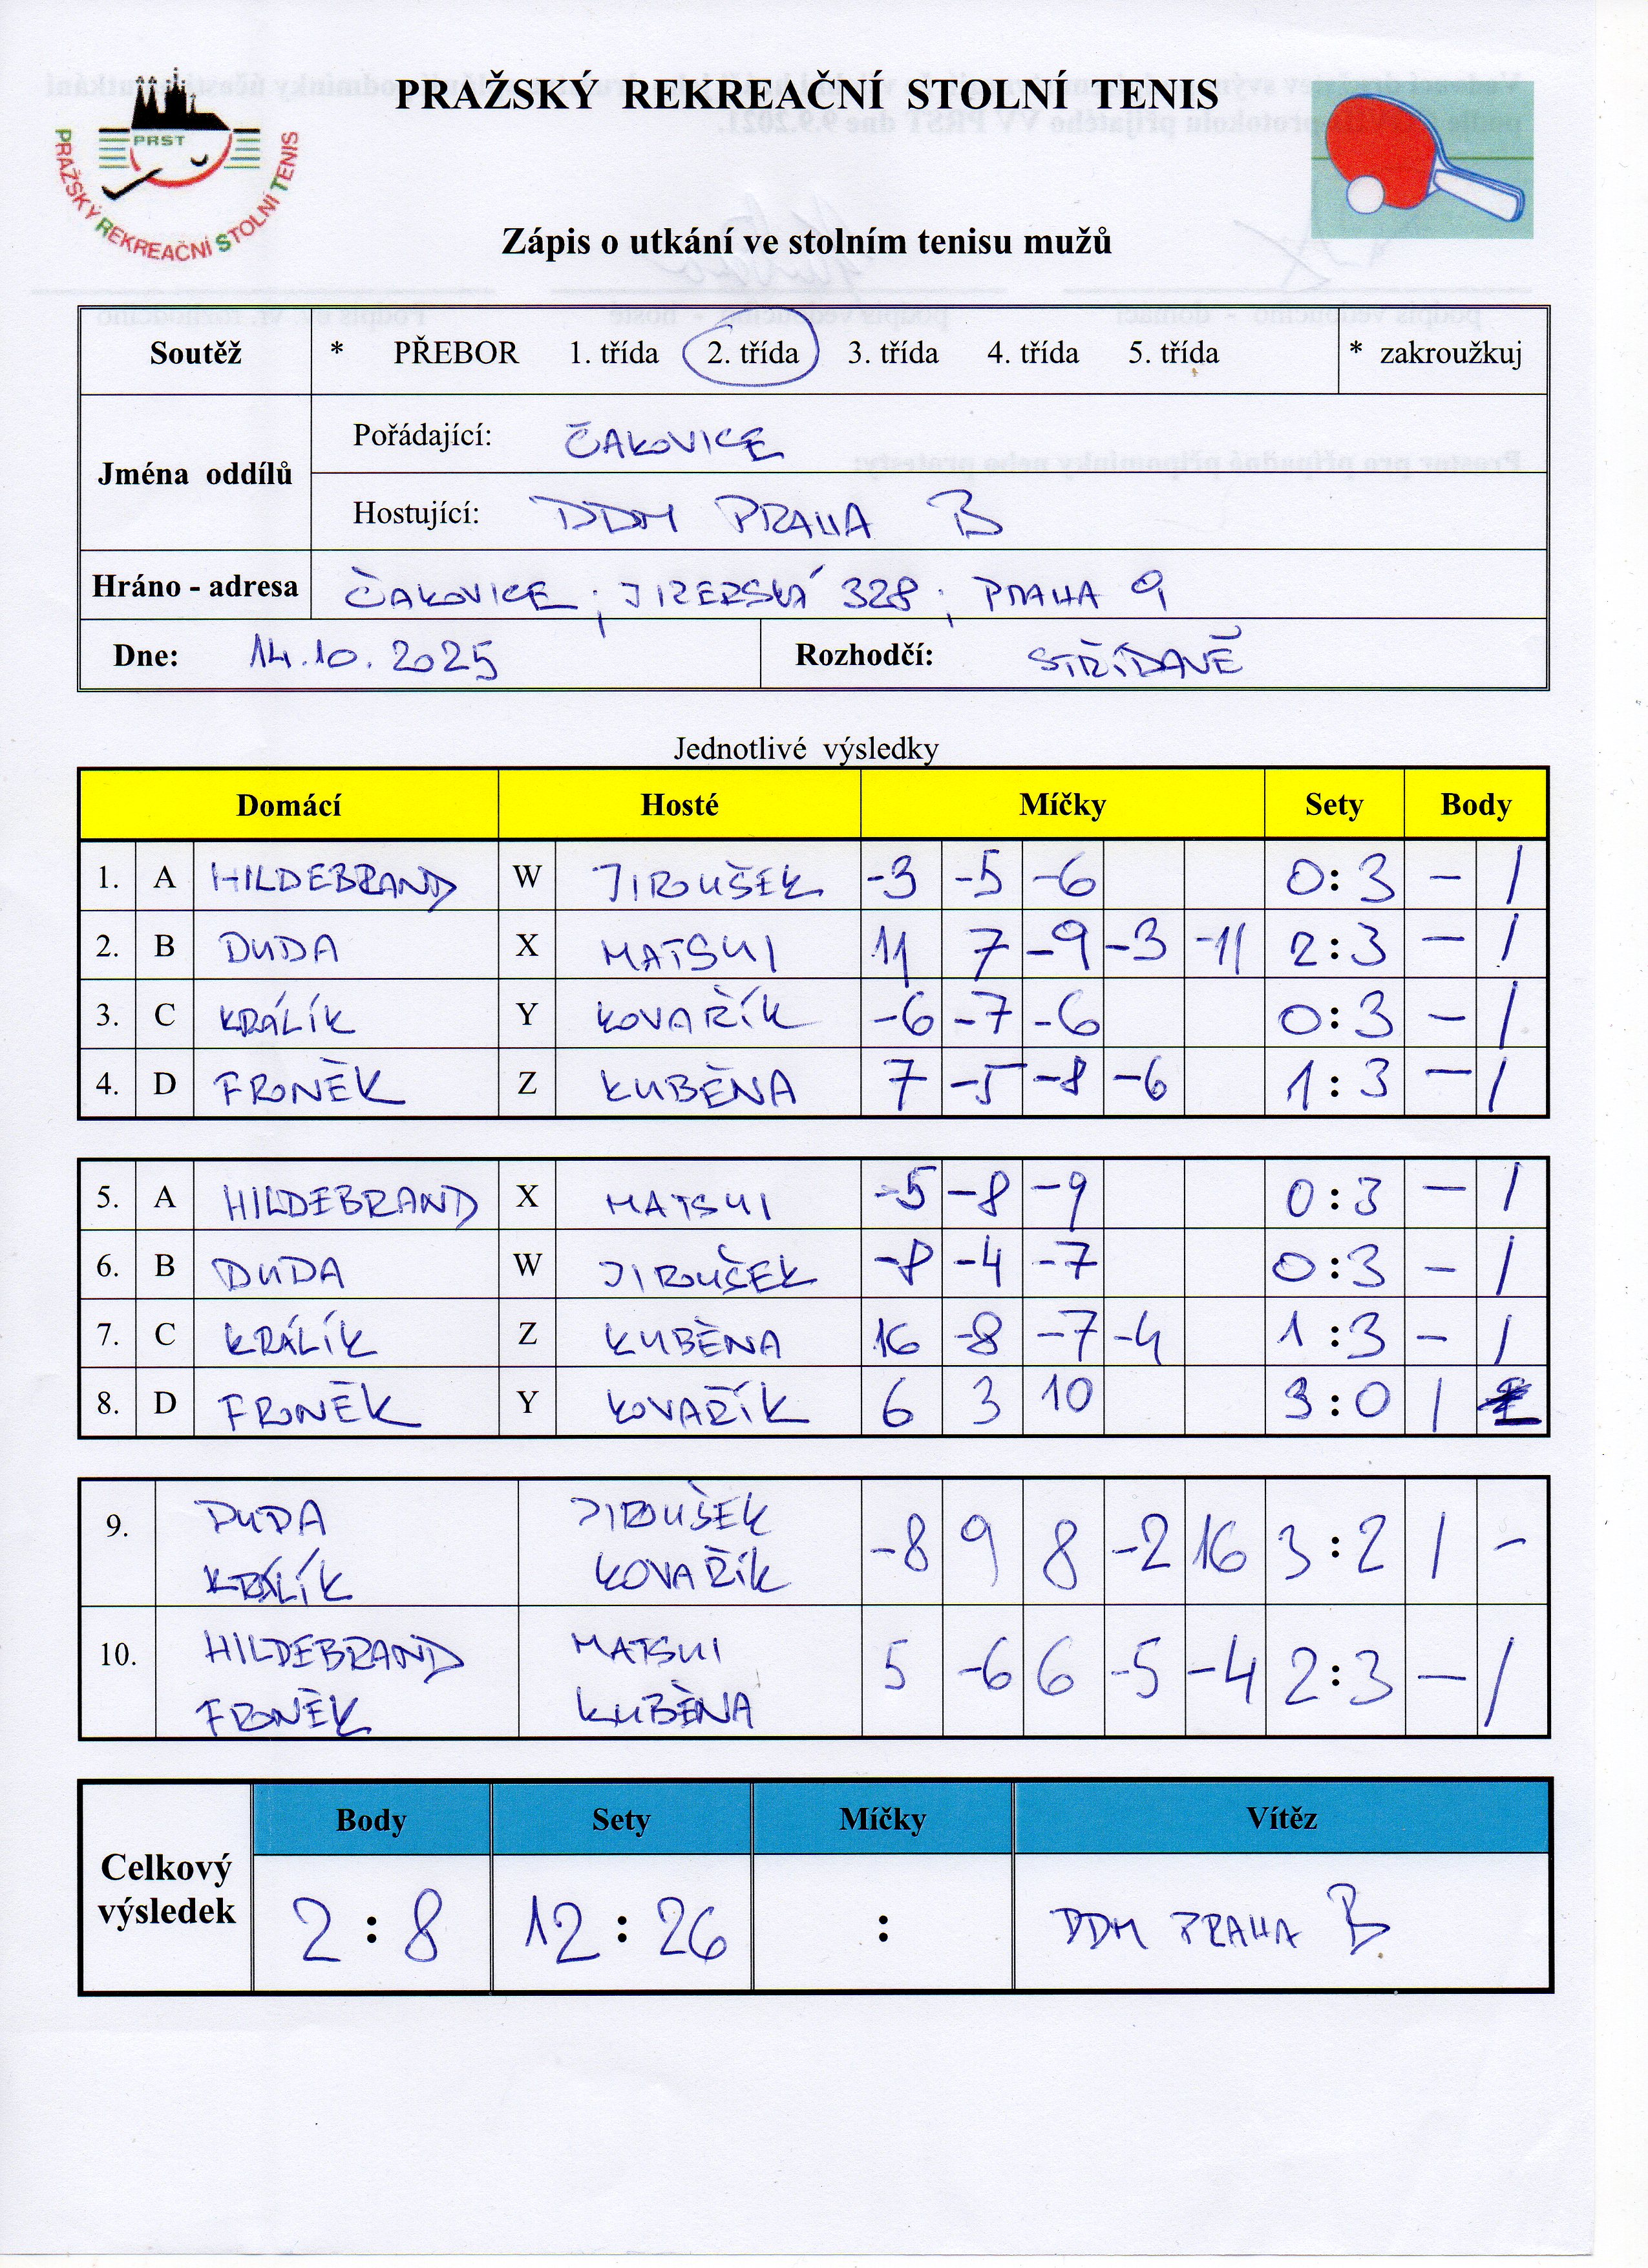 PRAŽSKÝ REKREAČNÍ STOLNÍ TENIS
PRST
PRAŽSKÝ REKREAČNÍ STOLNÍ TENIS
Zápis o utkání ve stolním tenisu mužů
Soutěž * PŘEBOR 1. třída 2. třída 3. třída 4. třída 5. třída * zakroužkuj
Jména oddílů
Pořádající: ČAKOVICE
Hostující: DDM PRAHA B
Hráno - adresa ČAKOVICE ; JIZERSKÁ 328 ; PRAHA 9
Dne: 14.10.2025 Rozhodčí: STŘÍDAVĚ
Jednotlivé výsledky
Domácí Hosté Míčky Sety Body
1. A HILDEBRAND W JIROUŠEK -3 -5 -6 0:3 - 1
2. B DUDA X MATSUI 11 7 -9 -3 -11 2:3 - 1
3. C KRÁLÍK Y KOVAŘÍK -6 -7 -6 0:3 - 1
4. D FRONĚK Z KUBĚNA 7 -5 -8 -6 1:3 - 1
5. A HILDEBRAND X MATSUI -5 -8 -9 0:3 - 1
6. B DUDA W JIROUŠEK -8 -4 -7 0:3 - 1
7. C KRÁLÍK Z KUBĚNA 16 -8 -7 -4 1:3 - 1
8. D FRONĚK Y KOVAŘÍK 6 3 10 3:0 1
9. DUDA JIROUŠEK -8 9 8 -2 16 3:2 1 -
KRÁLÍK KOVAŘÍK
10. HILDEBRAND MATSUI 5 -6 6 -5 -4 2:3 - 1
FRONĚK KUBĚNA
Celkový výsledek
Body Sety Míčky Vítěz
2:8 12:26 : DDM PRAHA B